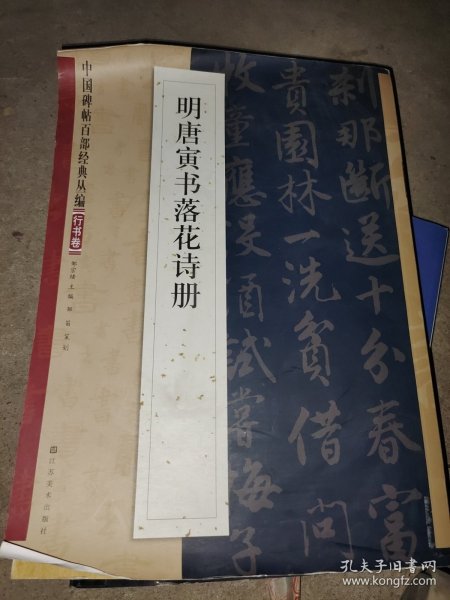 中国碑帖百部经典丛编
行书卷
郑宏绪 主编 郑笛 策划
江苏美术出版社
明唐寅书落花诗册
刹那断送十分春富
贵园林一洗贫借问
牧童应没酒试尝梅子
孔夫子旧书网
www.kongfz.com